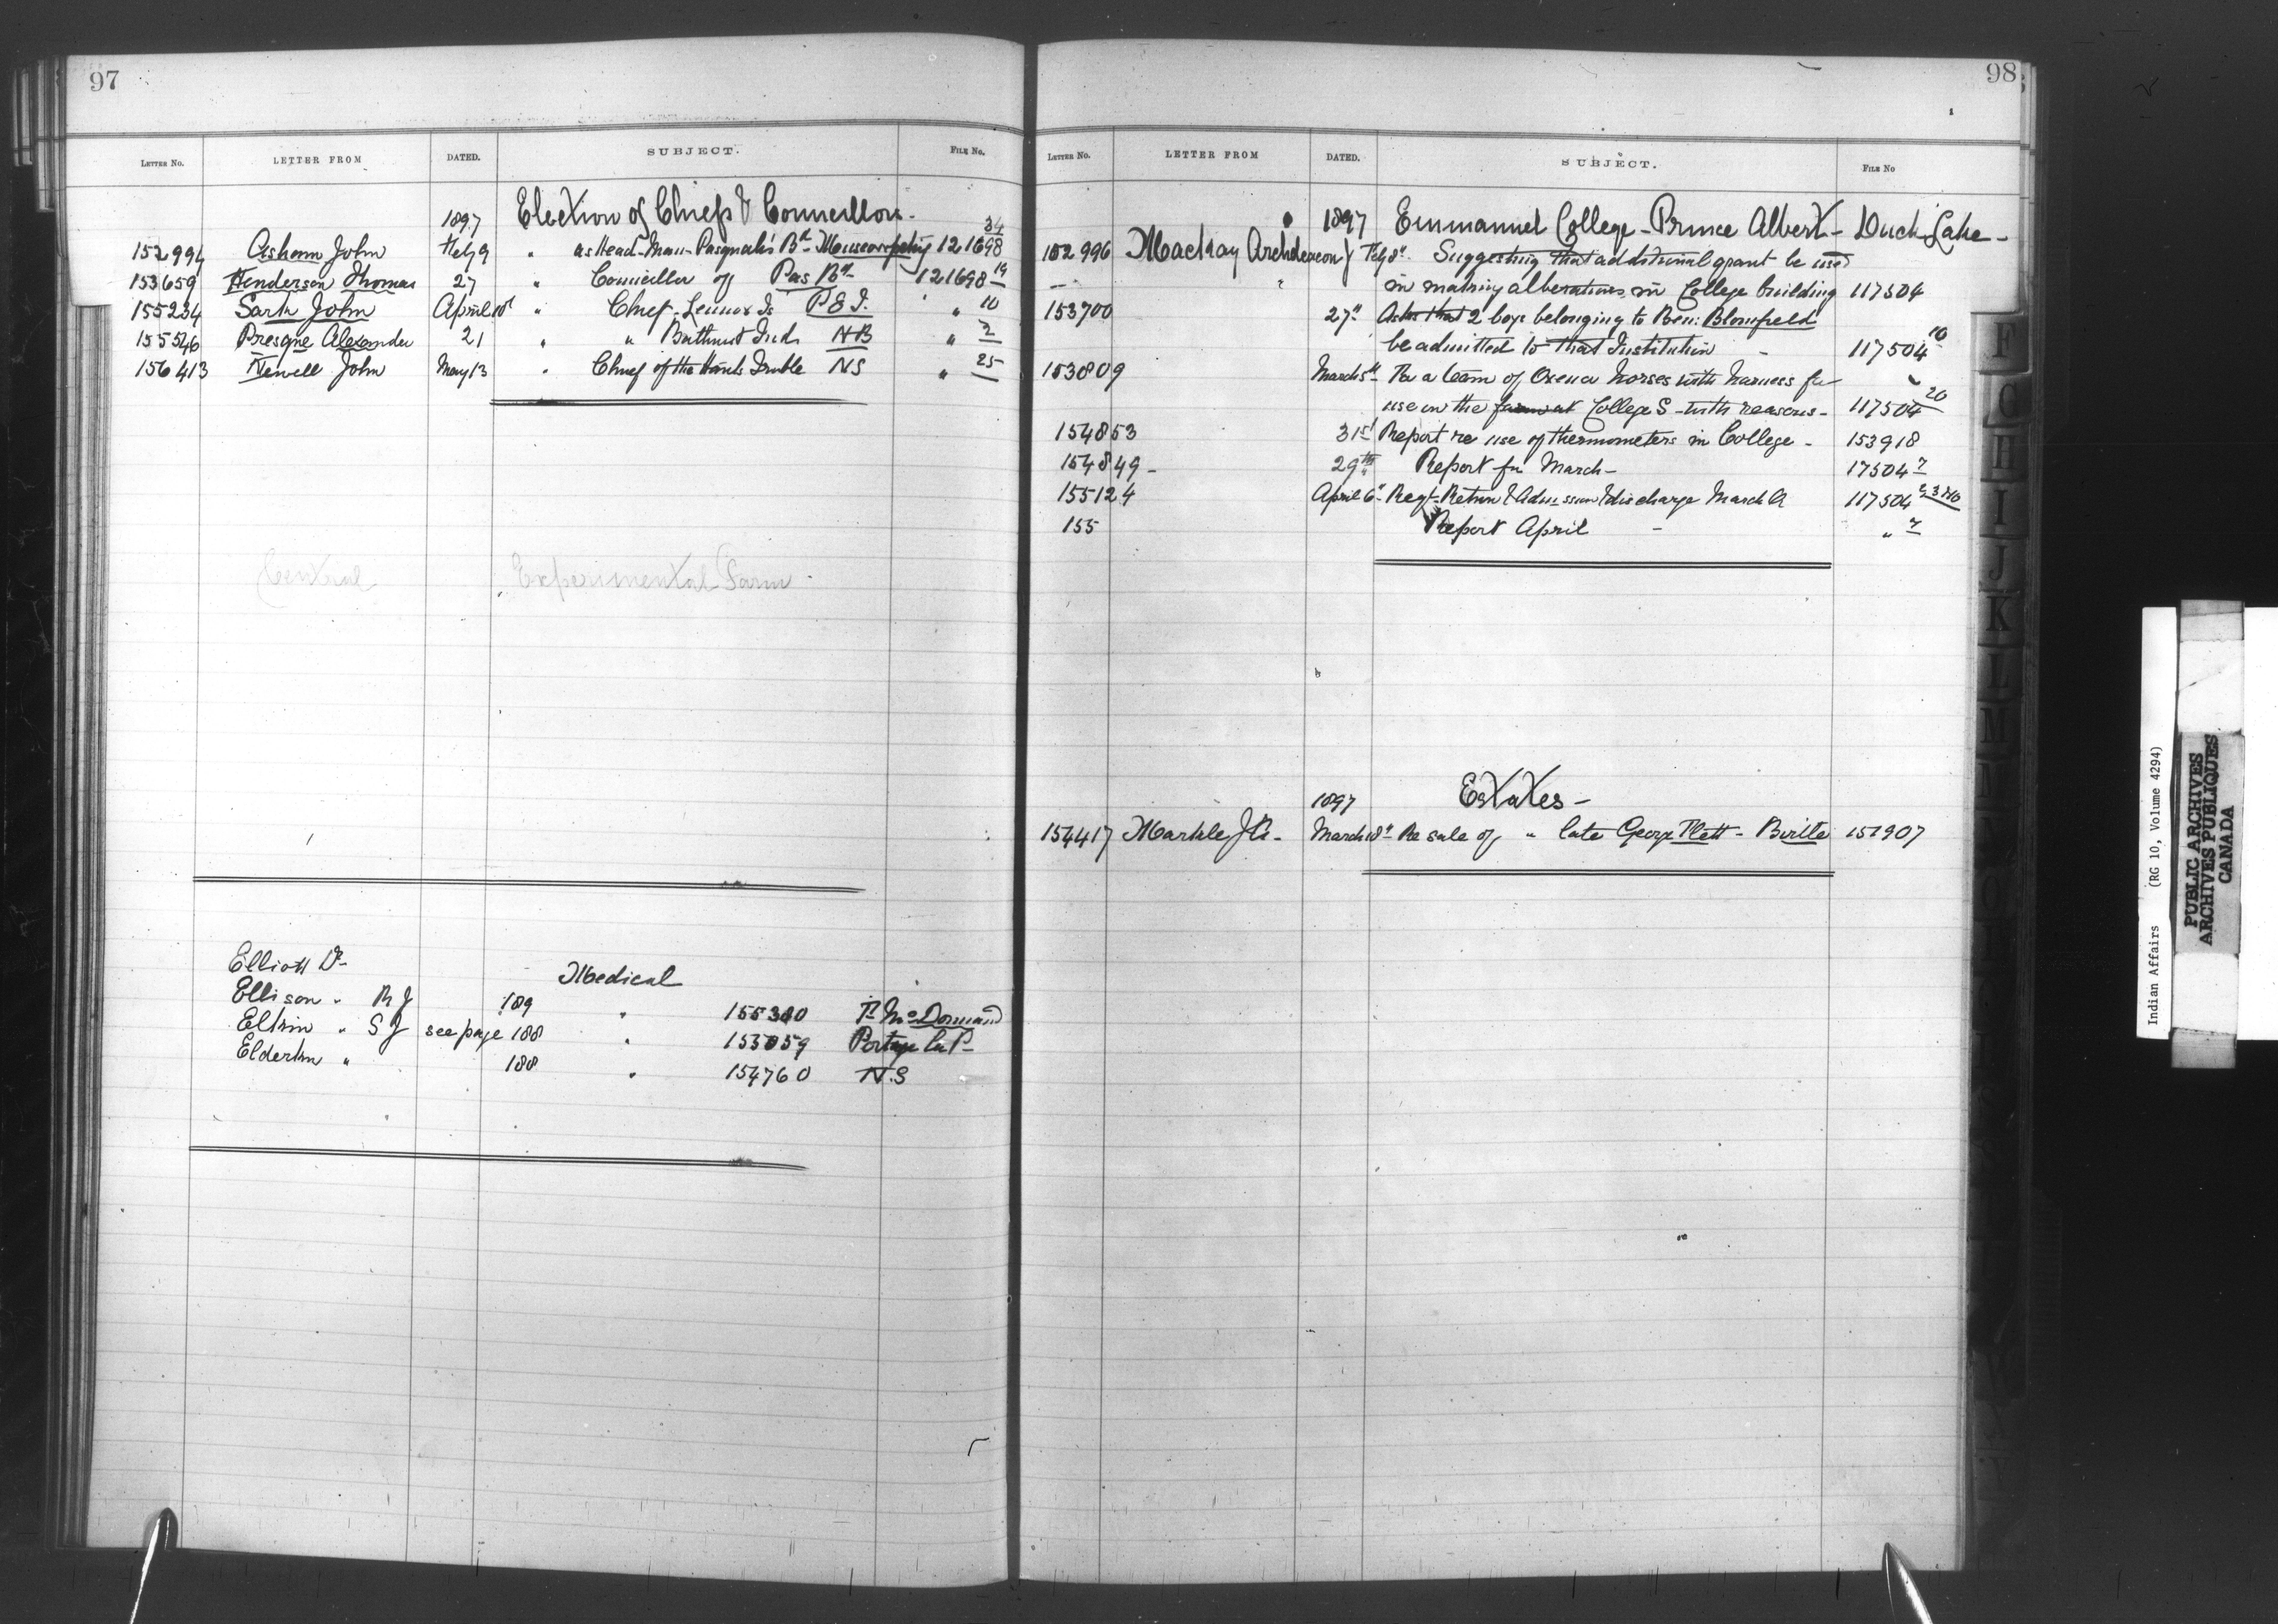 97
LETTER NO. LETTER FROM DATED. SUBJECT. FILE NO.
1897 Election of Chiefs & Councillors -
152994 Asham John Feby 9 " as Head-Man - Pasquah's Bd - 121698 34
153659 Henderson Thomas 27 " Councillor of Pas Bd - 121698 19
155234 Sark John April 10t " Chief - Lennox Is P.E.I. " 10
155546 Presque Alexander 21 " " Bathurst Inds NB " 2
156413 Newell John May 13 " Chief of the NS " 25
Central Experimental Farm -
Elliott Dr - Medical
Ellison " R J 189 " 155380 P. McDormand
Elkin " S J see page 188 " 153059 Portage la P -
Elderkin " 188 " 154760 N.S
98
LETTER NO. LETTER FROM DATED. SUBJECT. FILE NO
1897 Emmanuel College - Prince Albert - Duck Lake -
152996 Mackay Archdeacon } Feby 8" Suggesting that additional grant be used
in making alterations in College building 117504
153700 27" Asks that 2 boys belonging to Ben: Blomfield
be admitted to that Institution - 117504 10
153809 March 5th Re a team of Oxen or horses with harness for
use on the farm at College S - with reasons - 117504 20
154853 31st Report re use of thermometers in College - 153918
154849 - 29th Report for March - 17504 7
155124 April 6" Regt - Return & Admission & discharge March Q 117504
155 Report April - " 7
1897 Estates -
154417 Markle J A - March 18" Re sale of " late George Flett - Birtle 151907
F
G
H
I
J
K
L
M
Indian Affairs (RG 10, Volume 4294)
PUBLIC ARCHIVES
ARCHIVES PUBLIQUES
CANADA